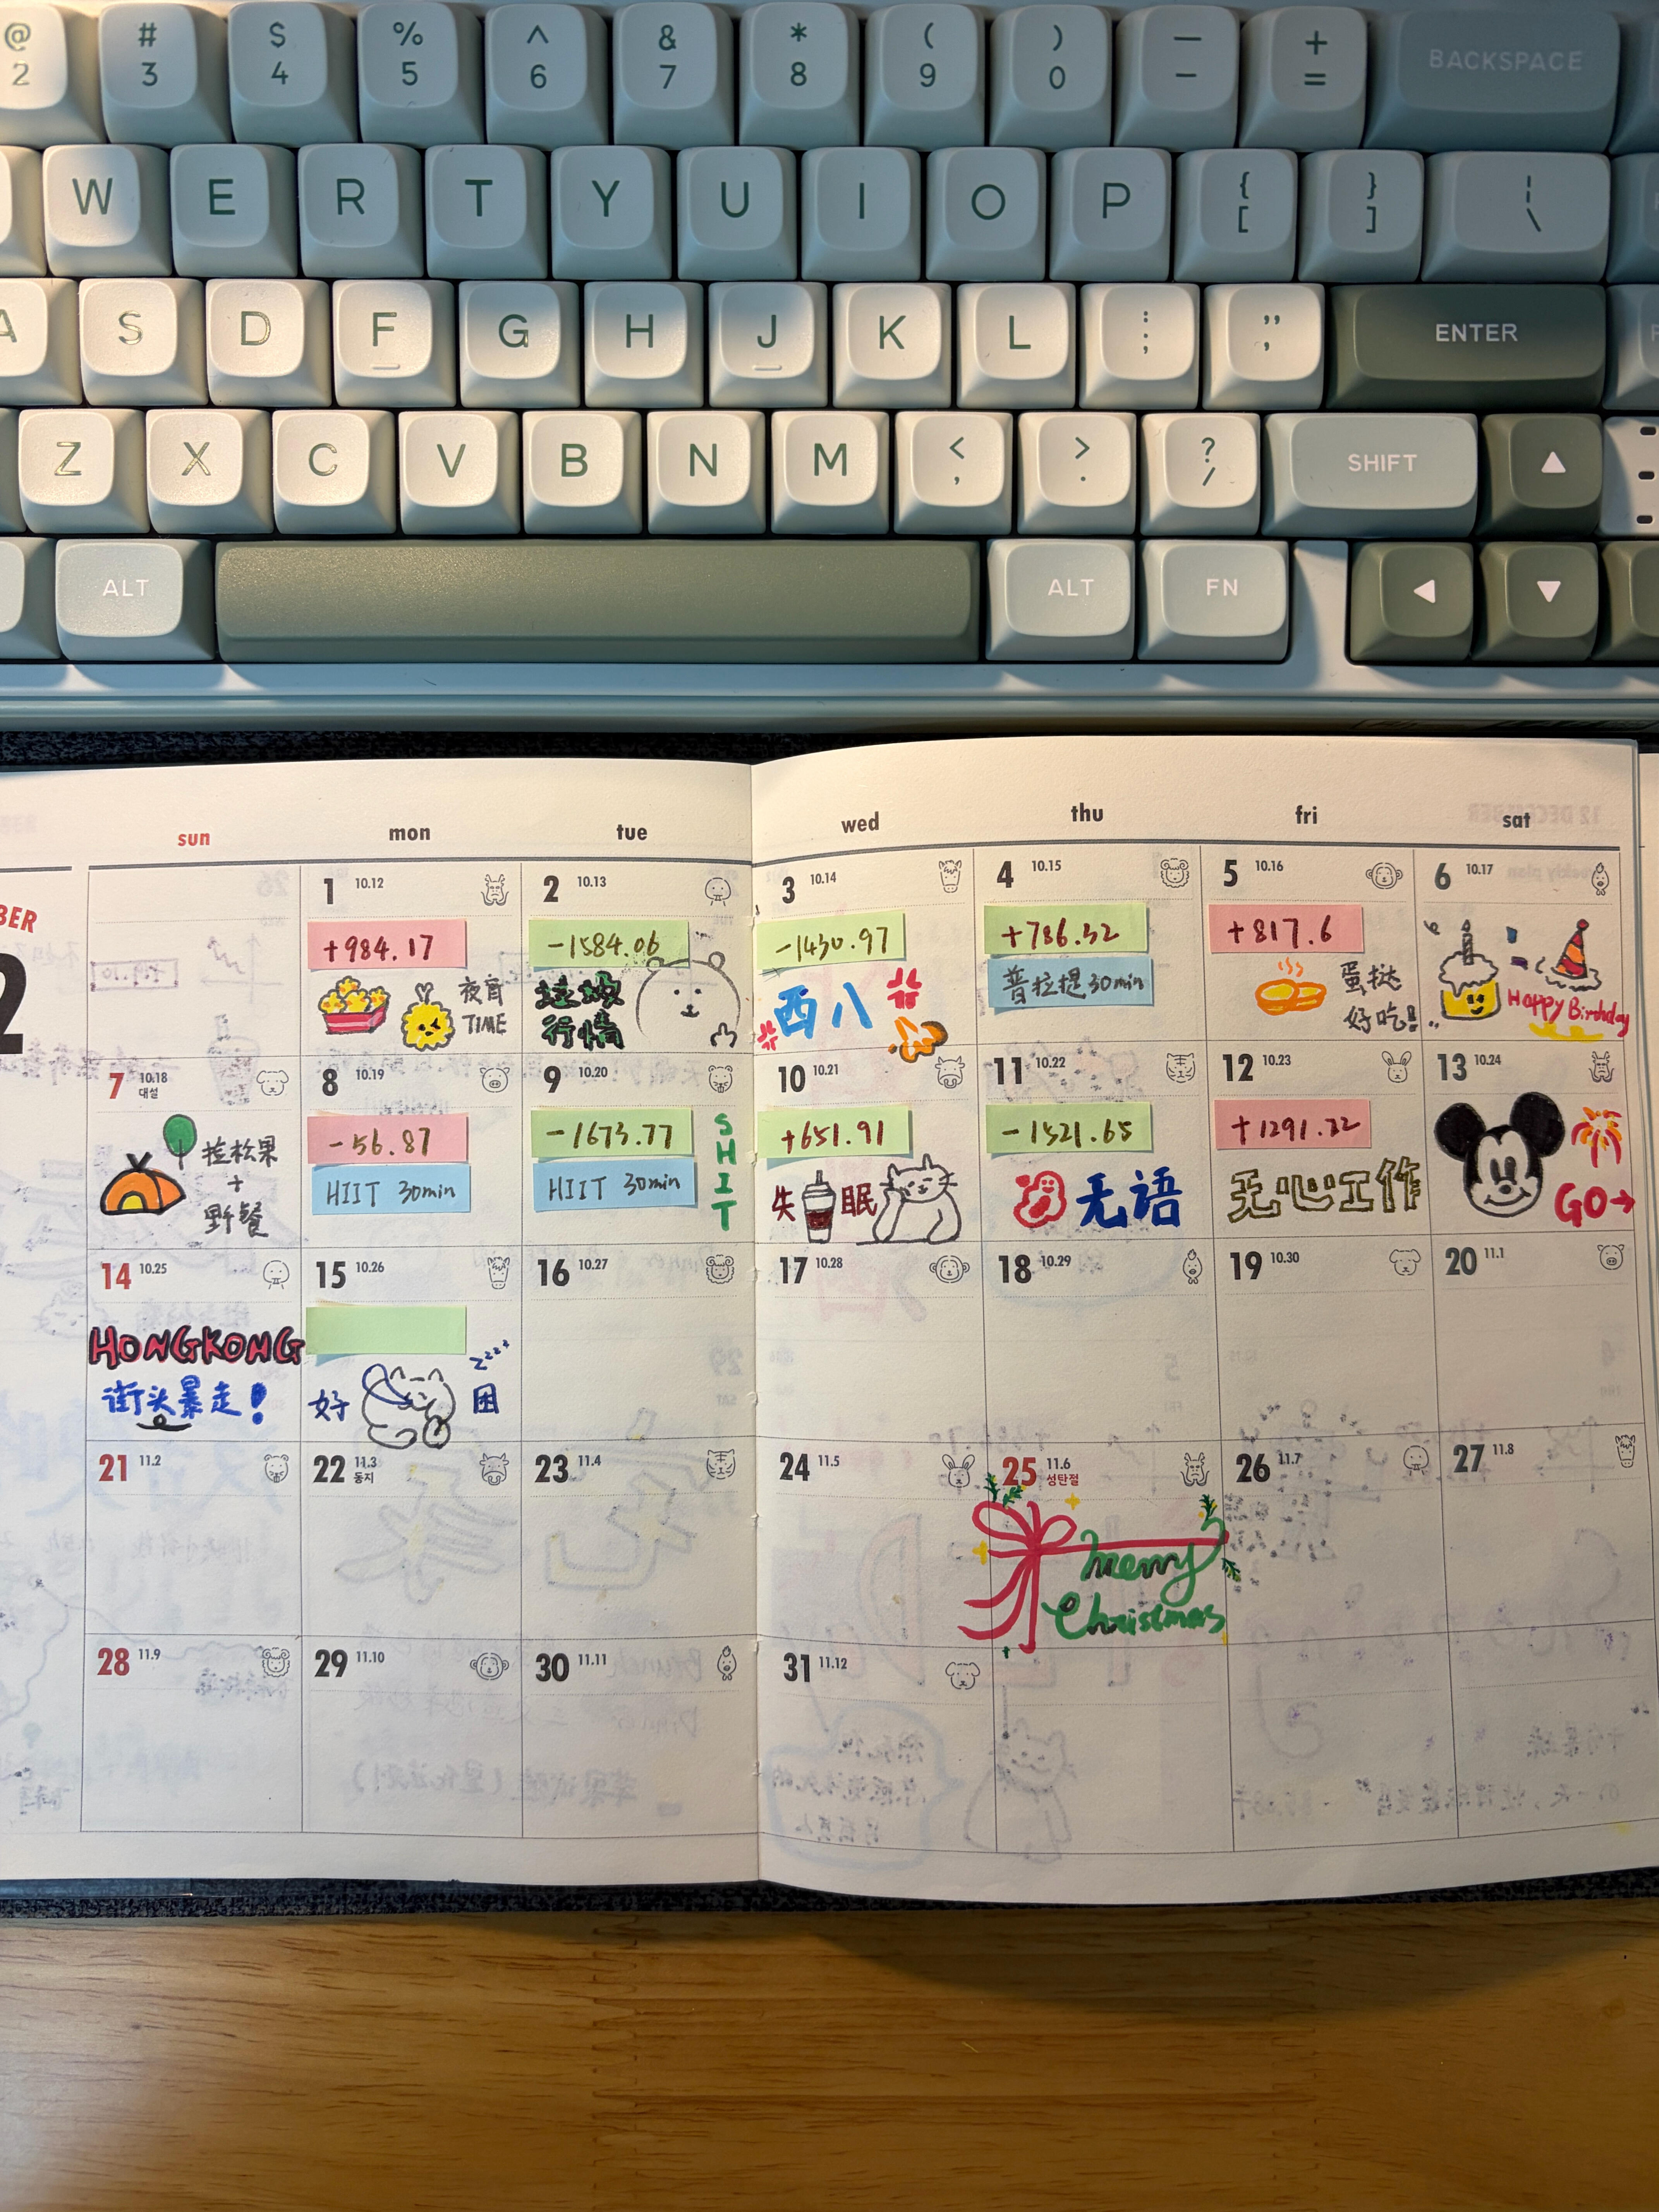 @ # $ % ^ & * ( ) — +
2 3 4 5 6 7 8 9 0 - = BACKSPACE
W E R T Y U I O P { [ } ] ¦ \
A S D F G H J K L : ; " , ENTER
Z X C V B N M < , > . ? / SHIFT
ALT ALT FN
BER
2
sun mon tue wed thu fri sat
1 10.12
+984.17
夜宵
TIME
2 10.13
-1584.06
垃圾
行情
3 10.14
-1430.97
西八
4 10.15
+786.32
普拉提30min
5 10.16
+817.6
蛋挞
好吃!
6 10.17
Happy Birthday
7 10.18
대설
捡松果
+
野餐
8 10.19
-56.87
HIIT 30min
9 10.20
-1673.77
HIIT 30min
SHIT
10 10.21
+651.91
失眠
11 10.22
-1521.65
无语
12 10.23
+1291.22
无心工作
13 10.24
GO→
14 10.25
HONGKONG
街头暴走!
15 10.26
zzzz
好困
16 10.27
17 10.28
18 10.29
19 10.30
20 11.1
21 11.2
22 11.3
동지
23 11.4
24 11.5
25 11.6
성탄절
merry
Christmas
26 11.7
27 11.8
28 11.9
29 11.10
30 11.11
31 11.12